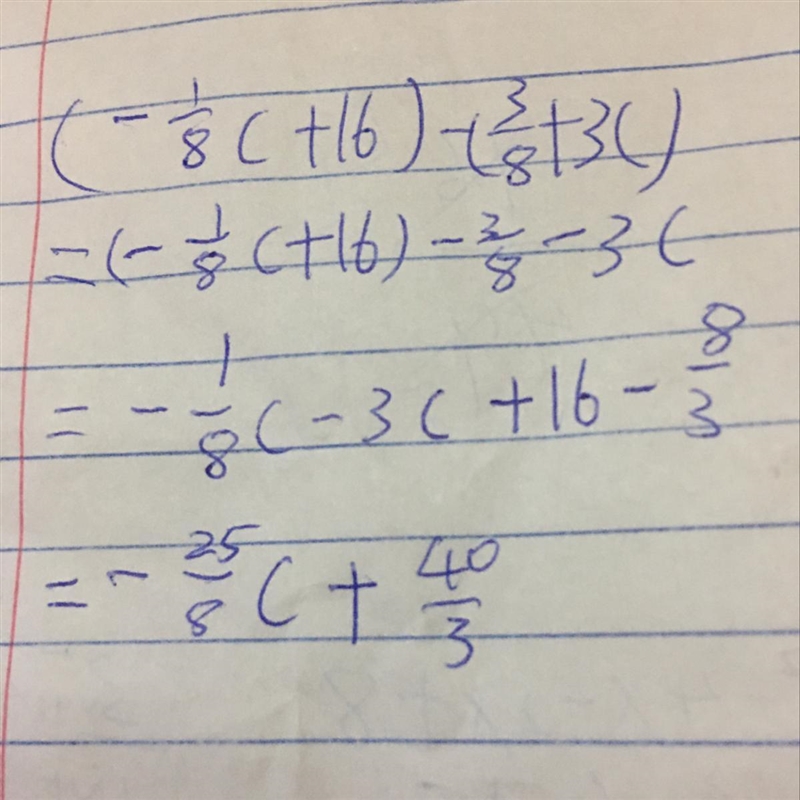 (-\frac{1}{8}c+16)-(\frac{3}{8}+3c)
=(-\frac{1}{8}c+16)-\frac{3}{8}-3c
=-\frac{1}{8}c-3c+16-\frac{8}{3}
=-\frac{25}{8}c+\frac{40}{3}